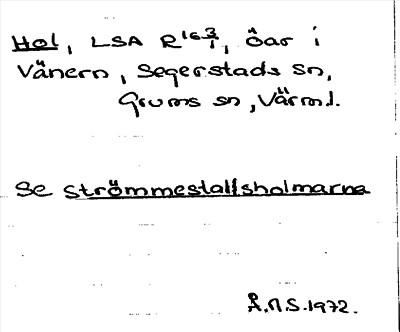 Hol, LSA R16 3/1, öar i
Vänern, Segerstads sn,
Grums sn, Värml.
Se Strömmestallsholmarna
Å.N.S. 1972.